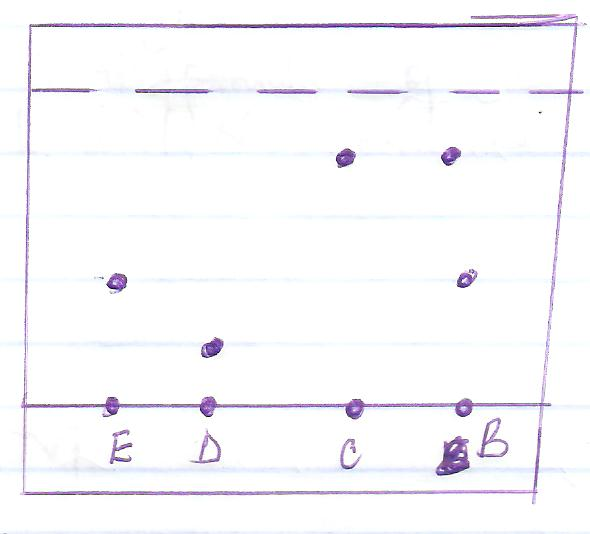 E D C B